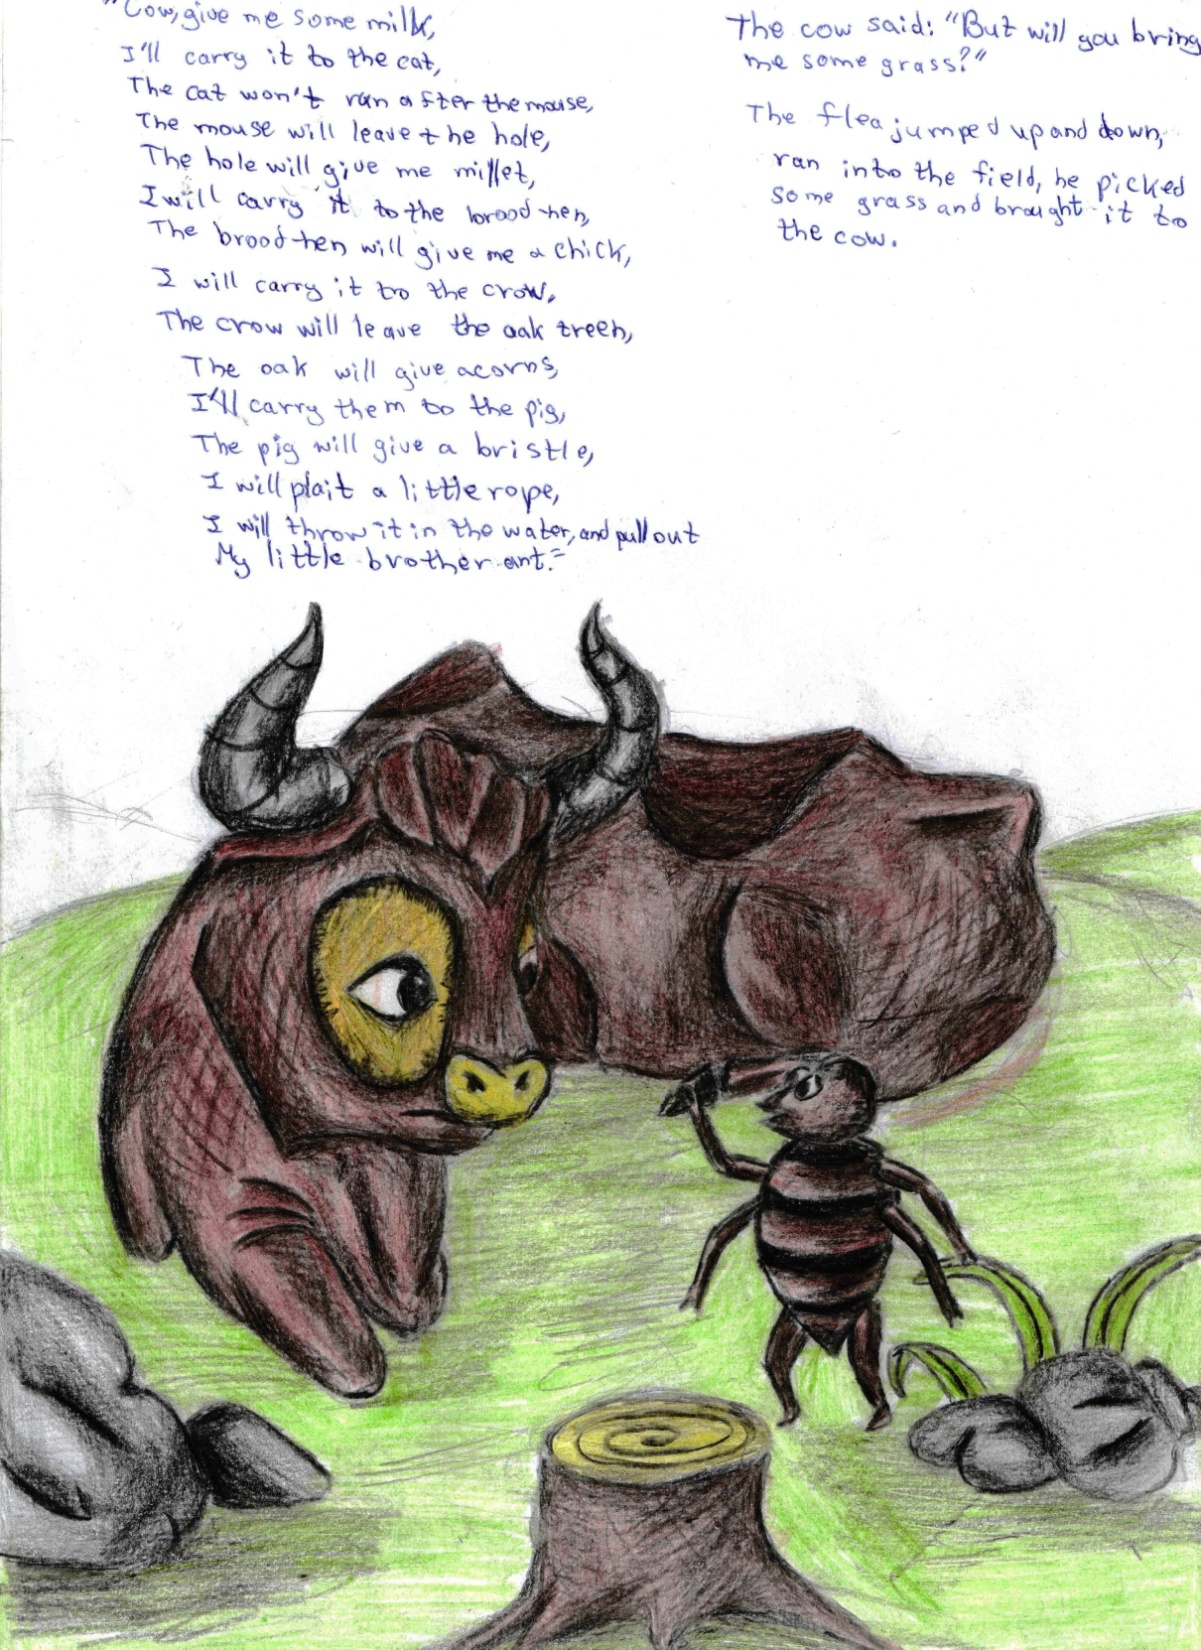 "Cow, give me some milk,
I'll carry it to the cat,
The cat won't run after the mouse,
The mouse will leave the hole,
The hole will give me millet,
I will carry it to the brood-hen,
The brood-hen will give me a chick,
I will carry it to the crow,
The crow will leave the oak treen,
The oak will give acorns,
I'll carry them to the pig,
The pig will give a bristle,
I will plait a little rope,
I will throw it in the water, and pull out
My little brother-ant."
The cow said: "But will you bring
me some grass?"
The flea jumped up and down,
ran into the field, he picked
some grass and brought it to
the cow.